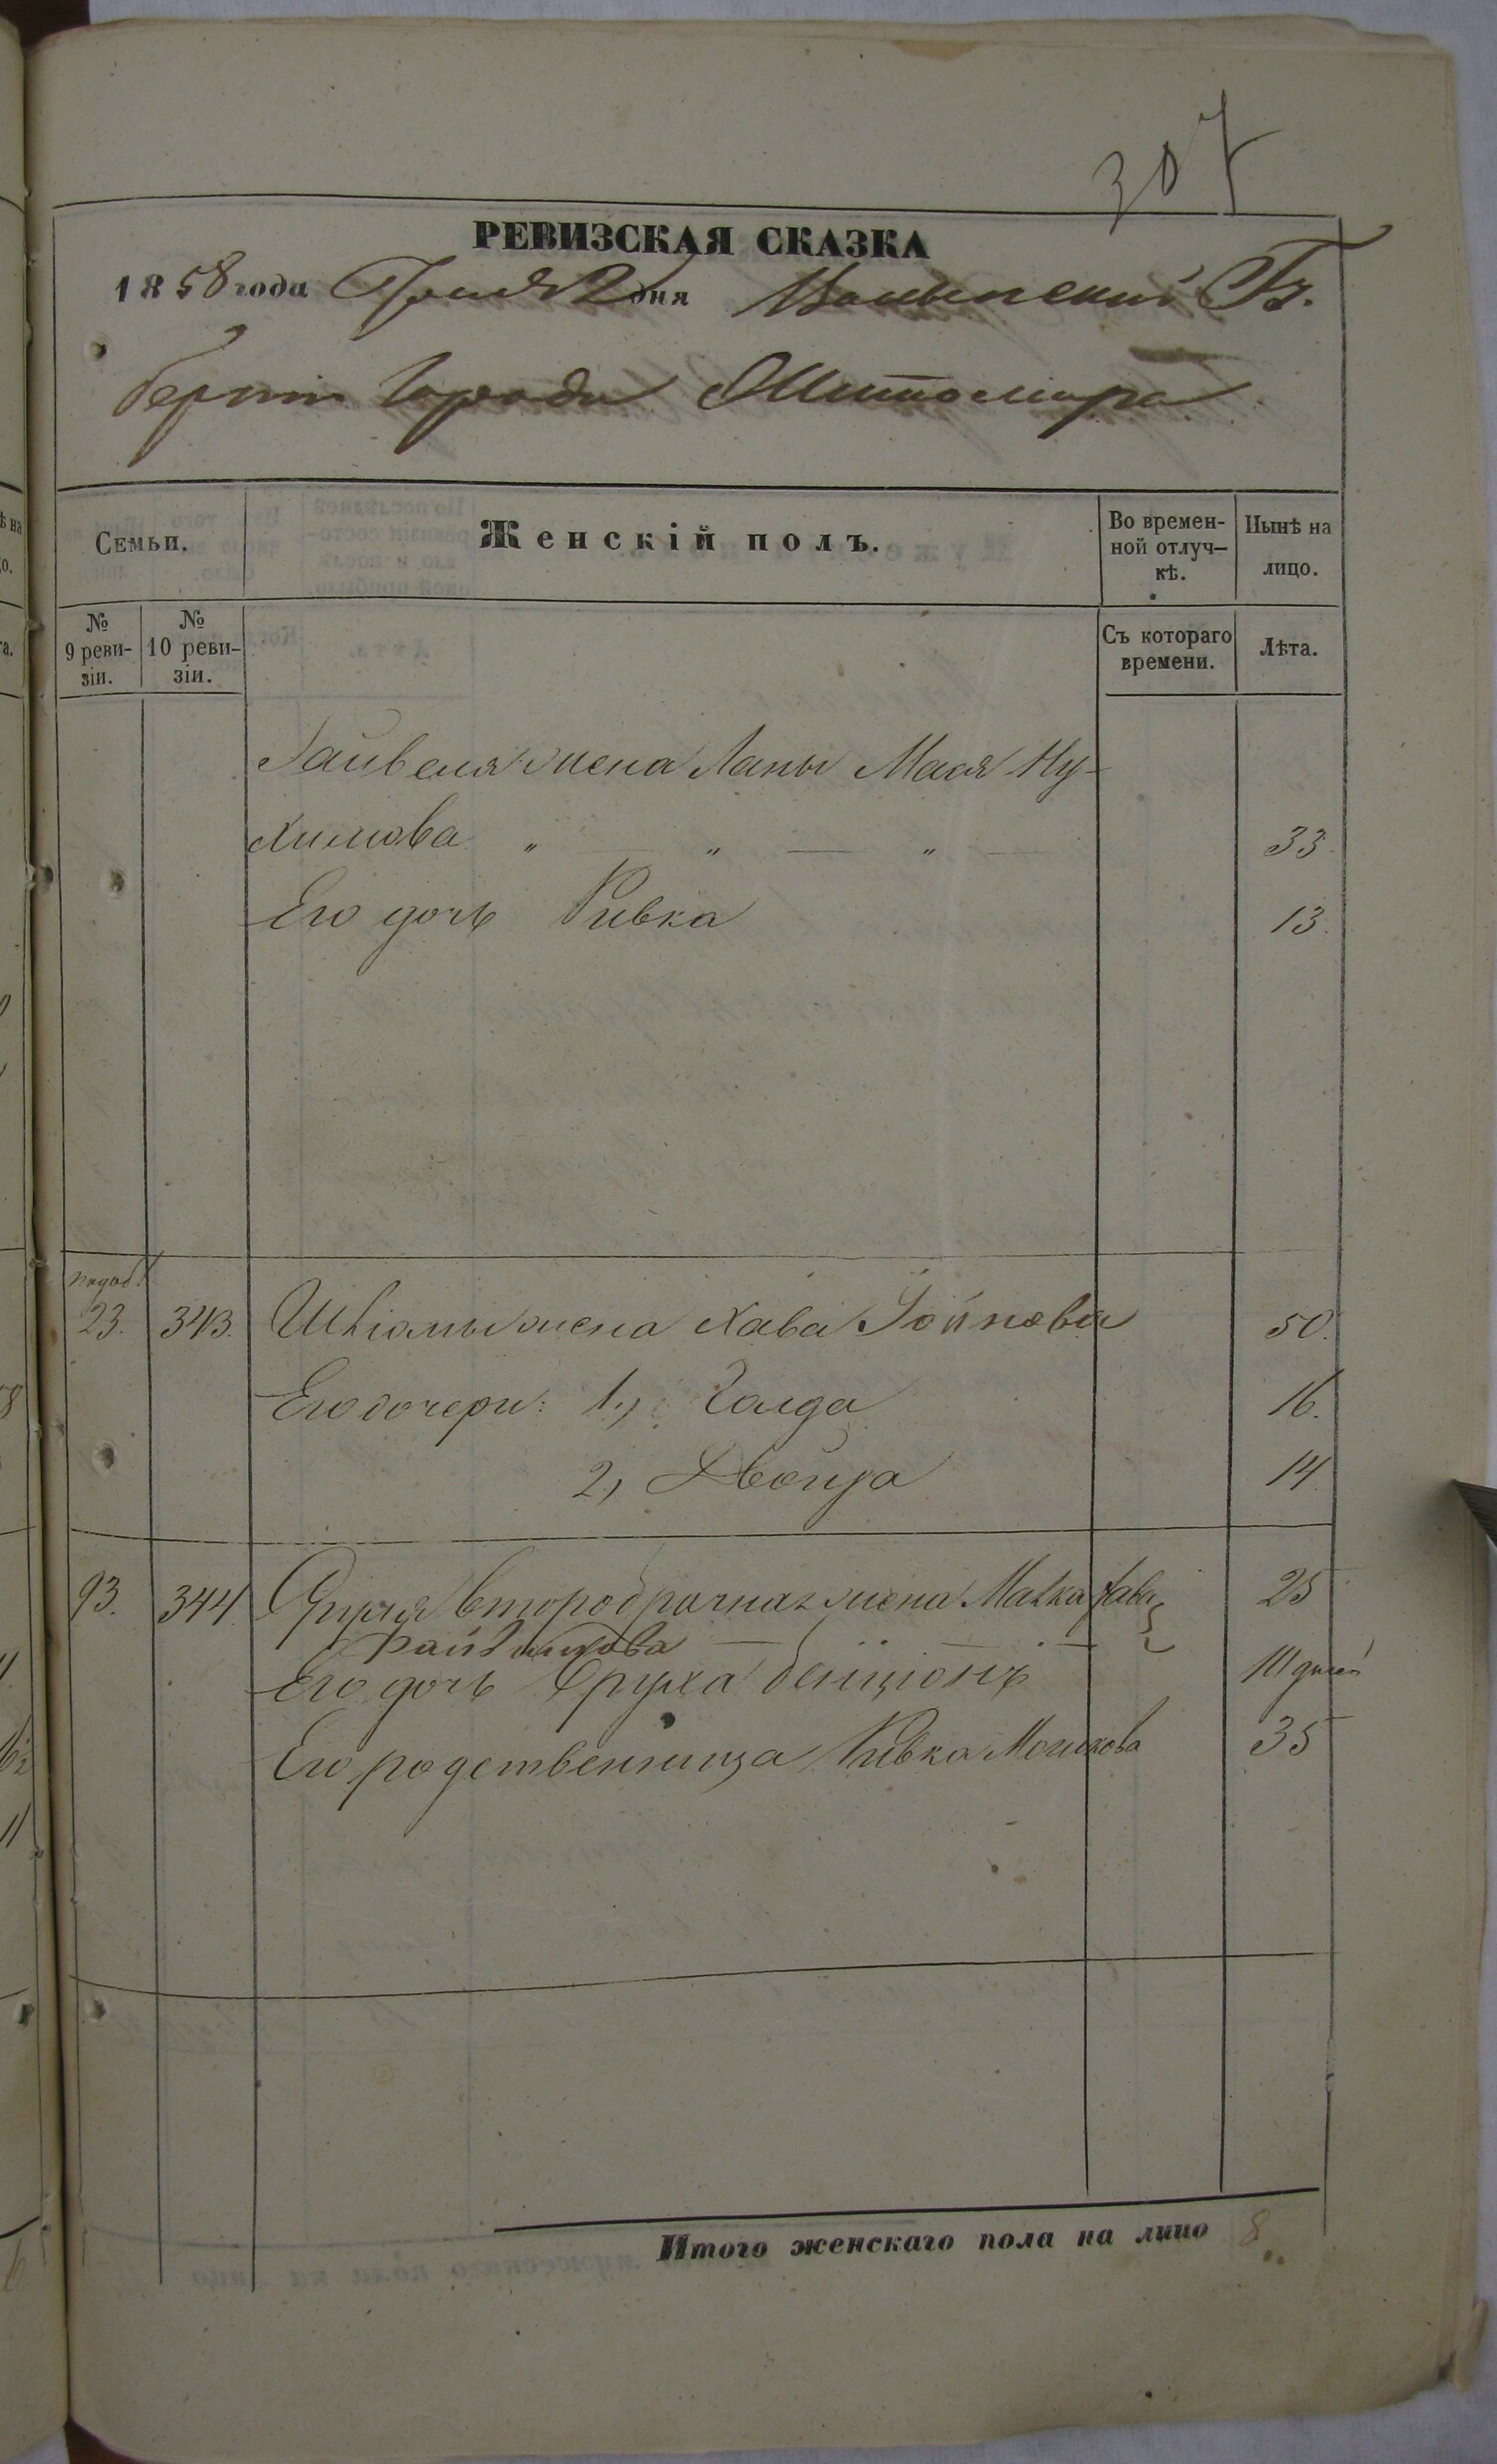 307
РЕВИЗСКАЯ СКАЗКА
1858 года Іюня 2 дня Волынской Гу-
берніи Города Житомира
Семьи.
Женскій полъ.
Во времен-
ной отлуч-
кѣ.
Нынѣ на
лицо.
№
9 реви-
зіи.
№
10 реви-
зіи.
Съ котораго
времени.
Лѣта.
жена Мася Ну-
химова 33.
Его дочь Ривка 13.
23. 343. жена Хава 50.
Его дочери: 1., Голда 16.
2, Двойра 14
93. 344 второбрачная жена Малка Хава 25
Его дочь 10 дней
Его родственница Ривка Мошкова 35
Итого женскаго пола на лицо 8